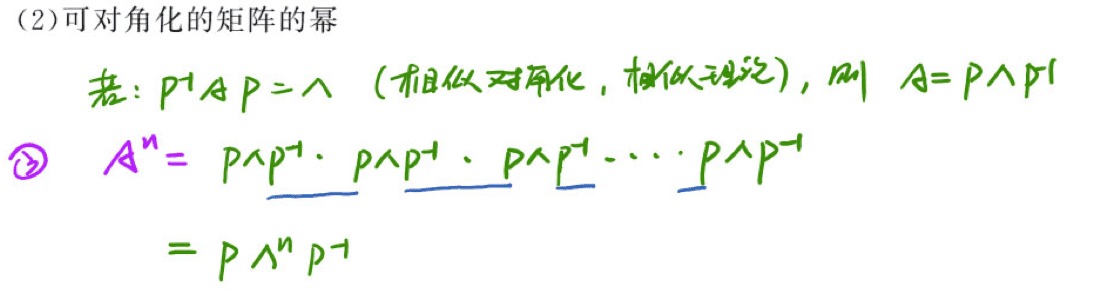 (2)可对角化的矩阵的幂
若：P⁻¹AP=Λ （相似对角化，相似理论），则 A=PΛP⁻¹
② Aⁿ= PΛP⁻¹· PΛP⁻¹· PΛP⁻¹·····PΛP⁻¹
= PΛⁿP⁻¹